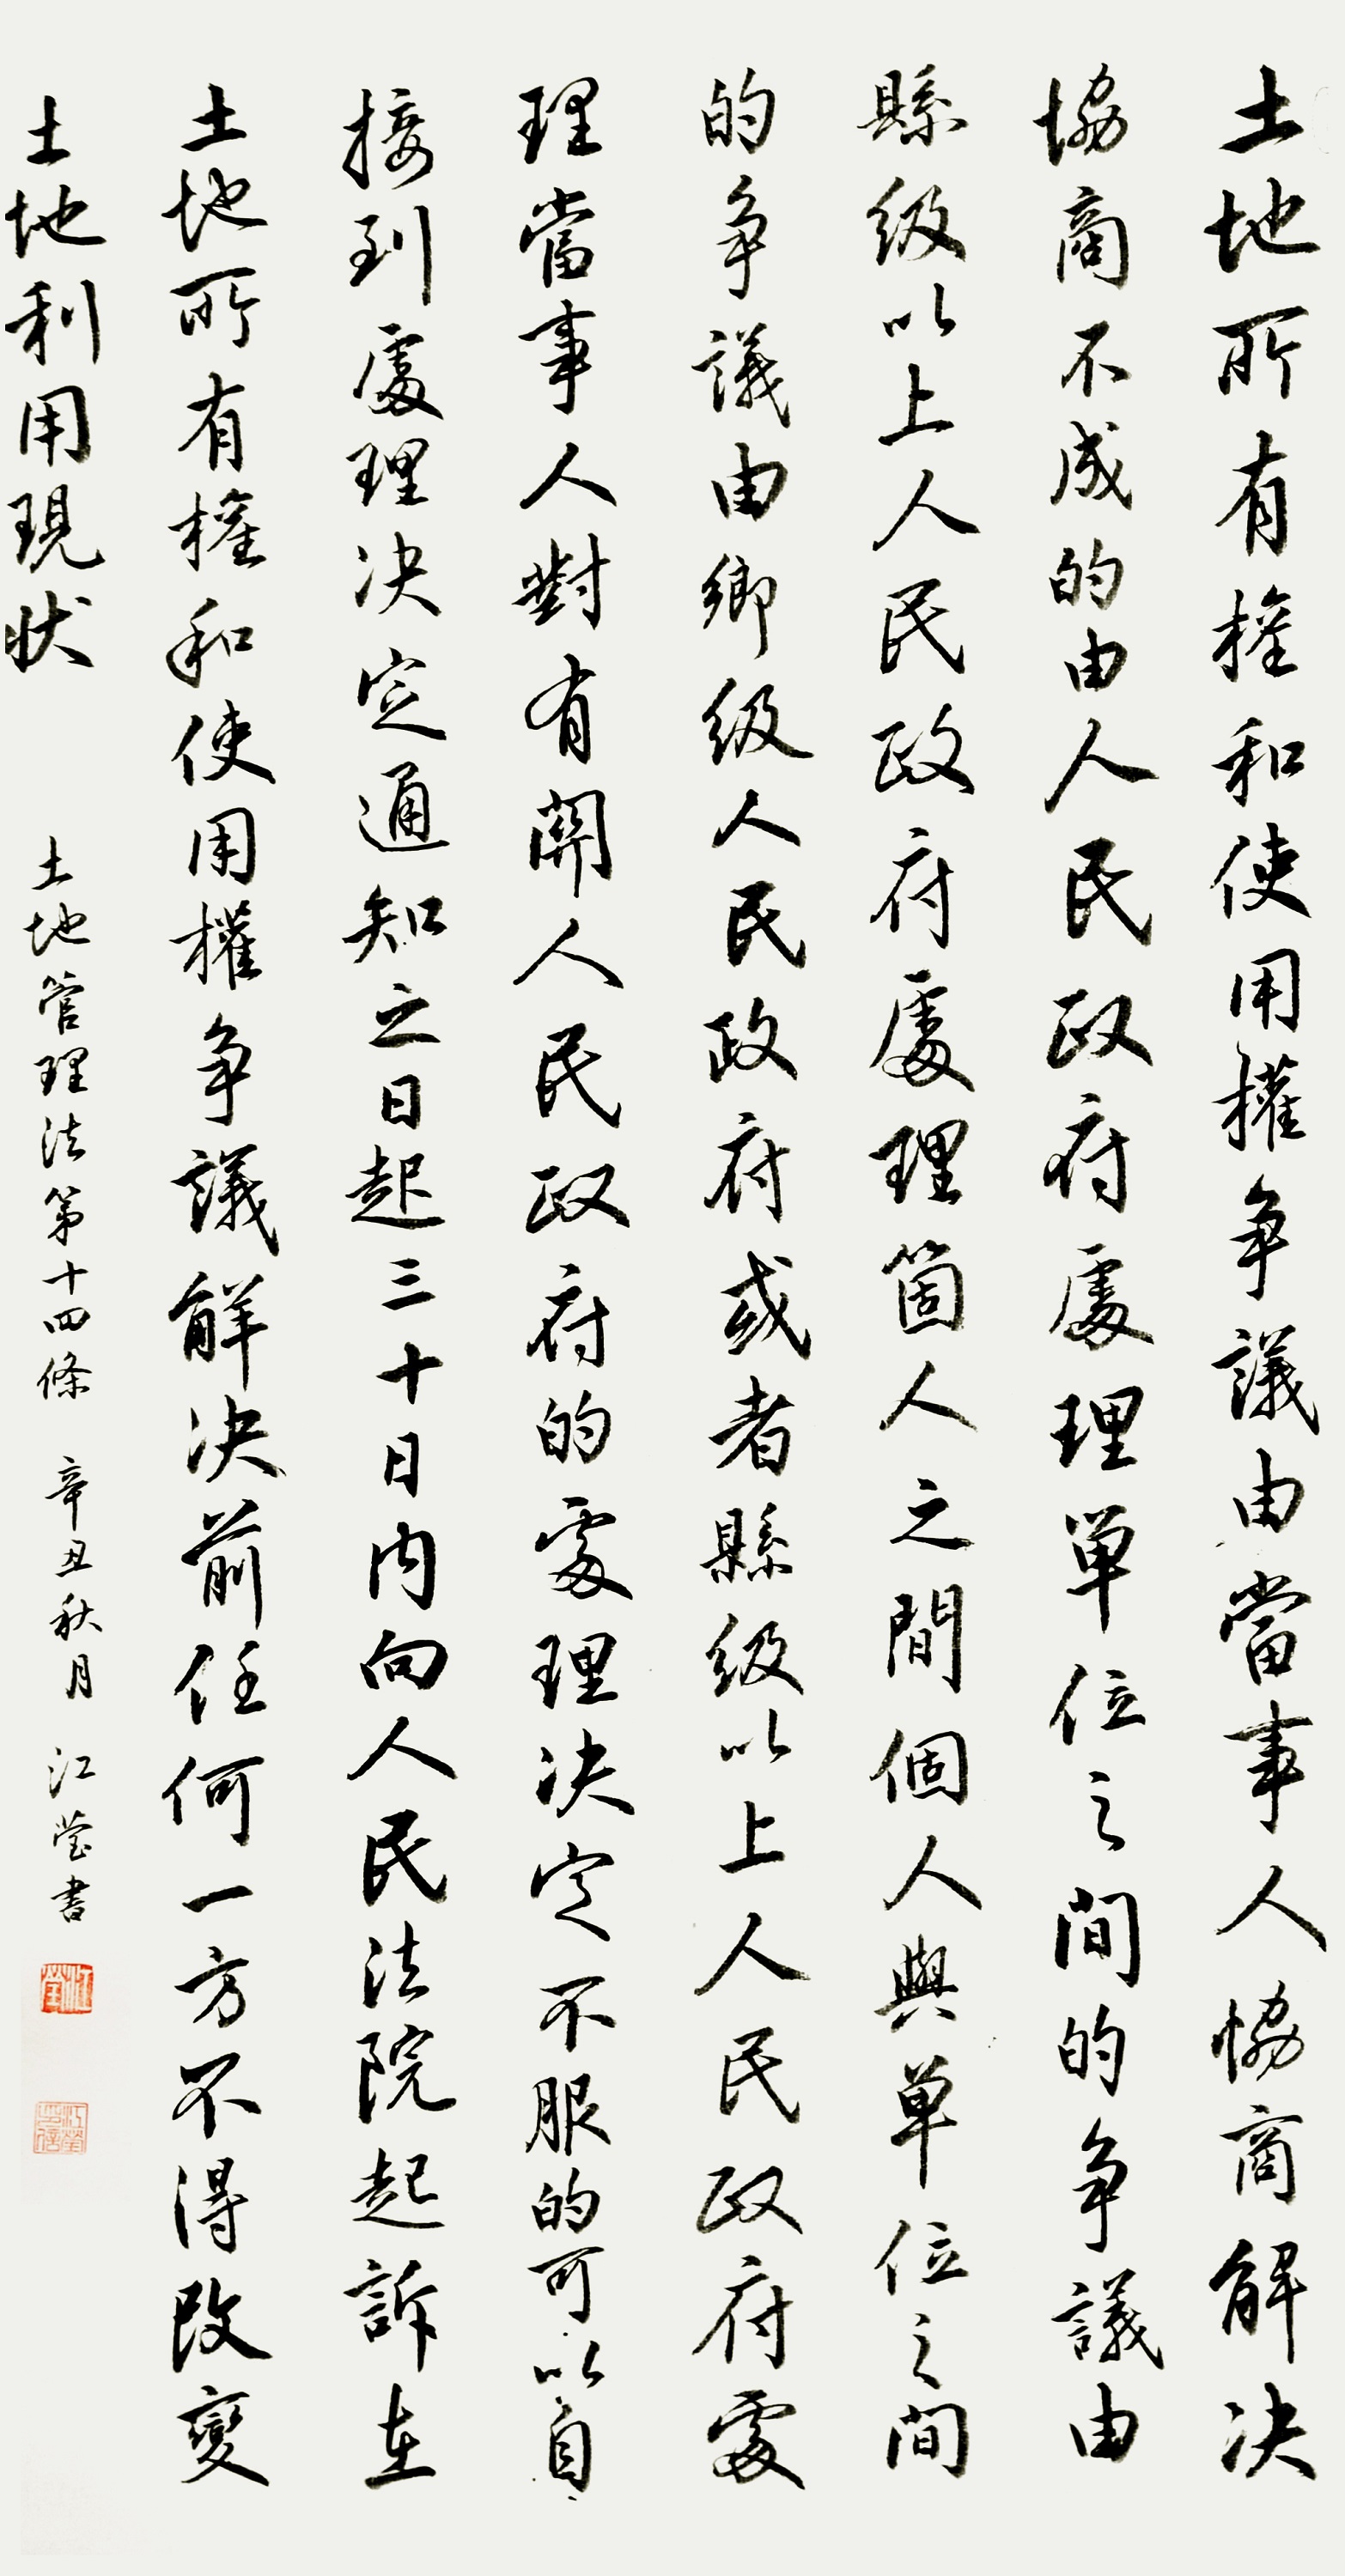 土地所有權和使用權争議由當事人協商解决
協商不成的由人民政府處理單位之間的争議由
縣級以上人民政府處理箇人之間個人與單位之間
的争議由鄉級人民政府或者縣級以上人民政府處
理當事人對有關人民政府的處理决定不服的可以自
接到處理决定通知之日起三十日内向人民法院起訴在
土地所有權和使用權争議解决前任何一方不得改變
土地利用現狀 土地管理法第十四條 辛丑秋月 江瑩書
江瑩
江瑩印信